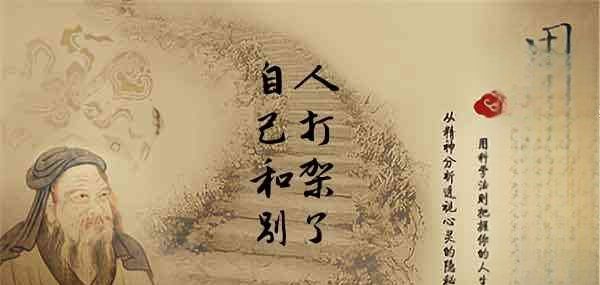 自己和别
人打架了
从精神分析透视心灵的隐秘
用科学法则把握你的人生